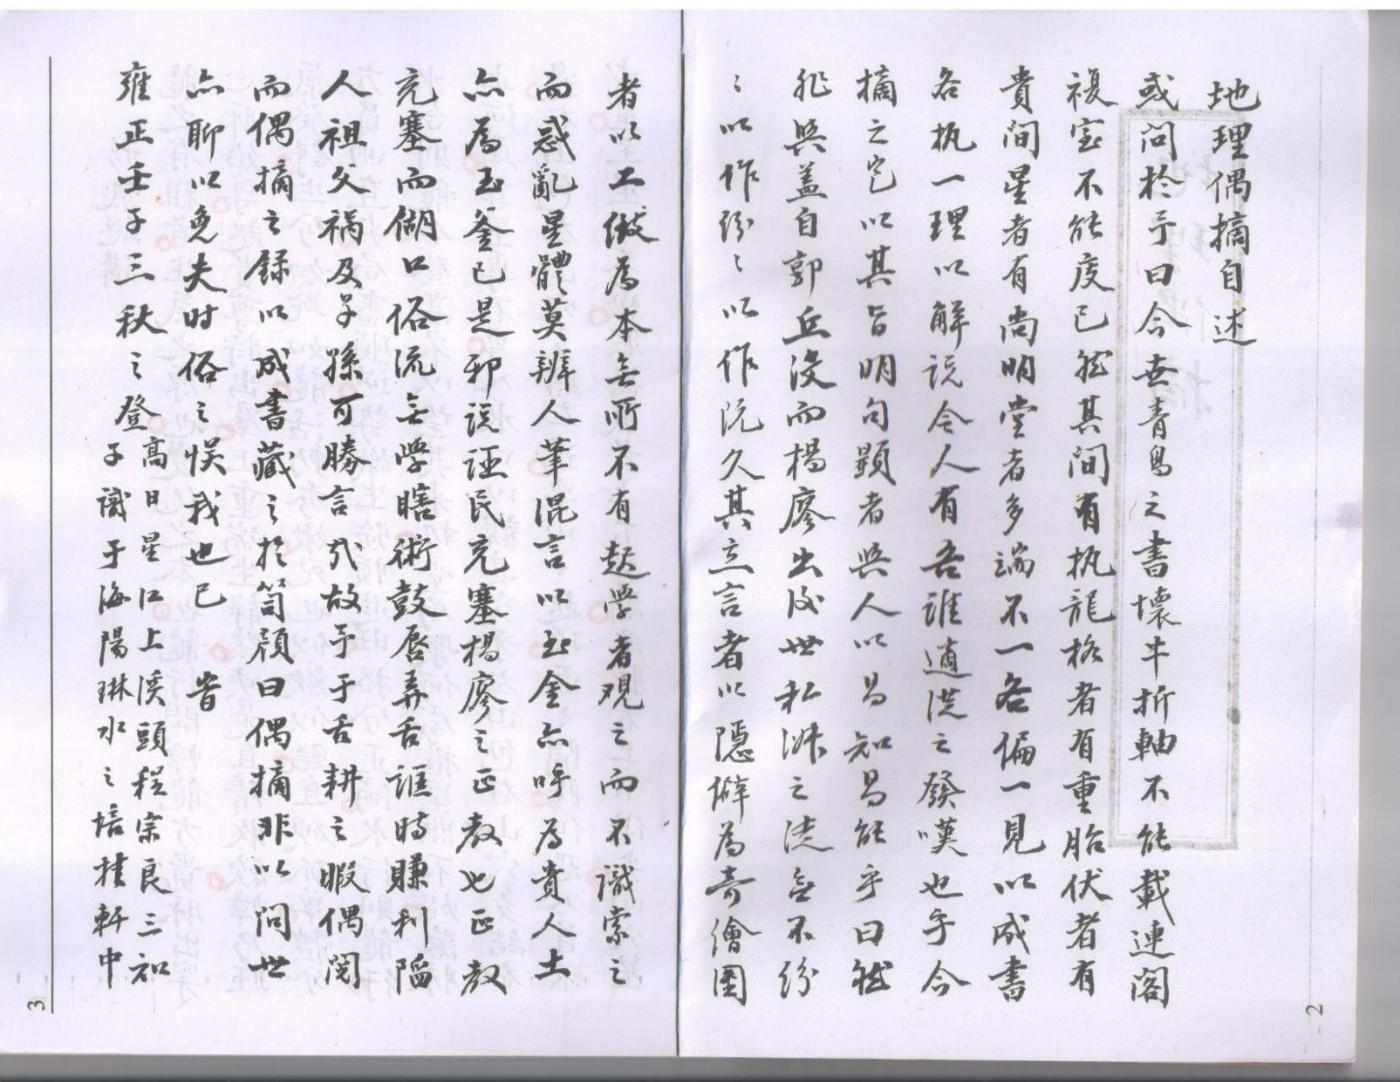 地理偶摘自述
或問於予曰今世青烏之書壞牛折軸不能載連閣
複室不能度已然其間有执龍格者有重胎伏者有
貴間星者有尚明堂者多端不一各偏一見以成書
各执一理以解説令人有吾誰適從之發嘆也乎今
摘之它以其旨明句顕者與人以易知易能乎曰然
非與蓋自郭丘没而楊廖出後世私淑之徒無不紛
〻以作紛〻以作阮久其立言者以隱僻為奇繪圖
者以工緻為本無所不有起學者观之而不識索之
而惑亂星體莫辨人笔混言以玉金亦呼為貴人土
亦為玉釜已是邪説诬民充塞楊廖之正教也正教
充塞而餬口俗流無学瞎術鼓唇弄舌誰時賺利陷
人祖父祸及子孫可勝言哉故予于舌耕之暇偶閲
而偶摘之録以成書藏之於笥顔曰偶摘非以问世
亦聊以免夫时俗之悮我也已 昔
雍正壬子三秋之登高日星江上溪頭程宗良三知
子識于海陽琳水之培桂軒中
2
3